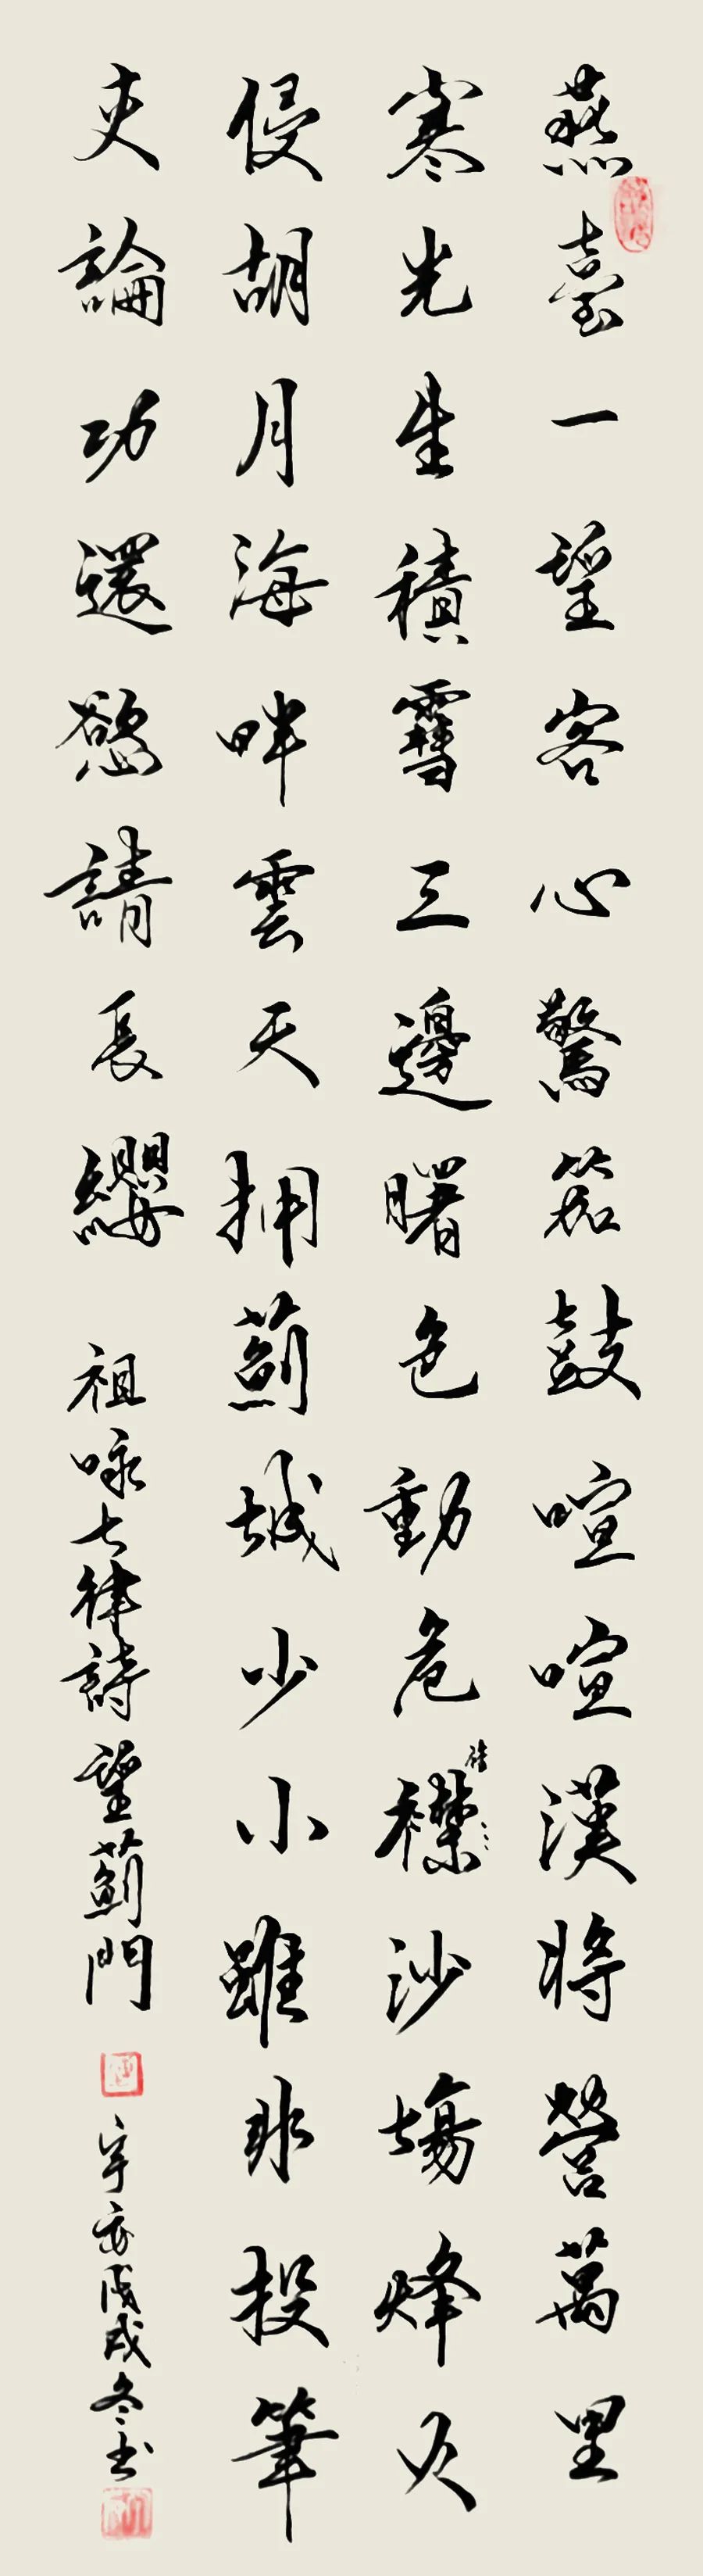 燕臺一望客心驚笳鼓喧喧漢將營萬里
寒光生積雪三邊曙色動危襟沙場烽火
侵胡月海畔雲天拥薊城少小雖非投筆
吏論功還慾請長纓 祖咏七律詩 望薊門 戊戌冬书